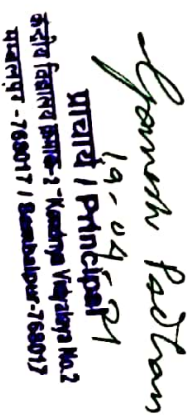 Ganesh Pradhan
19-04-21
प्राचार्य / Principal
केंद्रीय विद्यालय क्रमांक-2 / Kendriya Vidyalaya No.2
सम्बलपुर-768017 / Sambalpur-768017